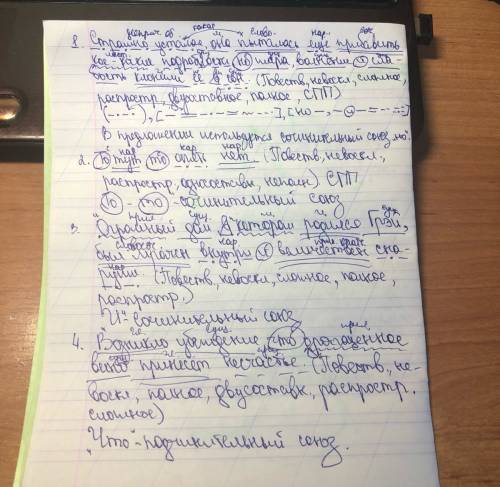 неприч. об. глаг. мест. слово. нар.
1. Страшно усталая, она пыталась ещё прибавить
кое-какие подробности, но жара, волнение и сла-
бость клонили её в сон. (Повеств, невоскл, сложное,
распростр, двусоставное, полное, СПП)
В предложении используется сочинительный союз „но".
нар. нар.
2. То тут то опять нет. (Повеств, невоскл.,
распростр, односоставн, неполн.) СПП
То - то - сочинительный союз
прил. сущ. м. гл.
3. Огромный дом в котором родился Грэй,
нар.
был мрачен внутри и величественен сна-
нар.
ружи. (Повеств, невоскл, сложное, полное,
распростр.)
„И" сочинительный союз
гл. сущ. прил.
4. Возникло убеждение, что драгоценное
сущ. гл.
вино принесёт несчастье. (Повеств., не-
воскл, полное, двусоставн., распростр.
сложное)
„Что" - подчинительный союз.